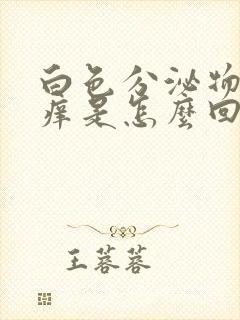 白色分泌物
痒是怎麼回
王蓉蓉